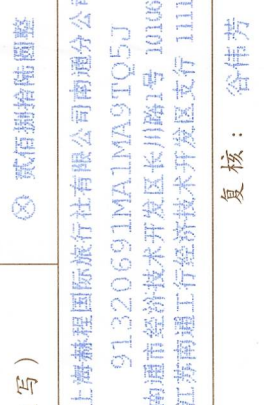 写)
ⓧ 贰佰捌拾陆圆整
上海赫程国际旅行社有限公司南通分公司
91320691MA1MA9TQ5J
南通市经济技术开发区长川路1号 10106
江苏南通工行经济技术开发区支行 1111
复核:
谷伟芳